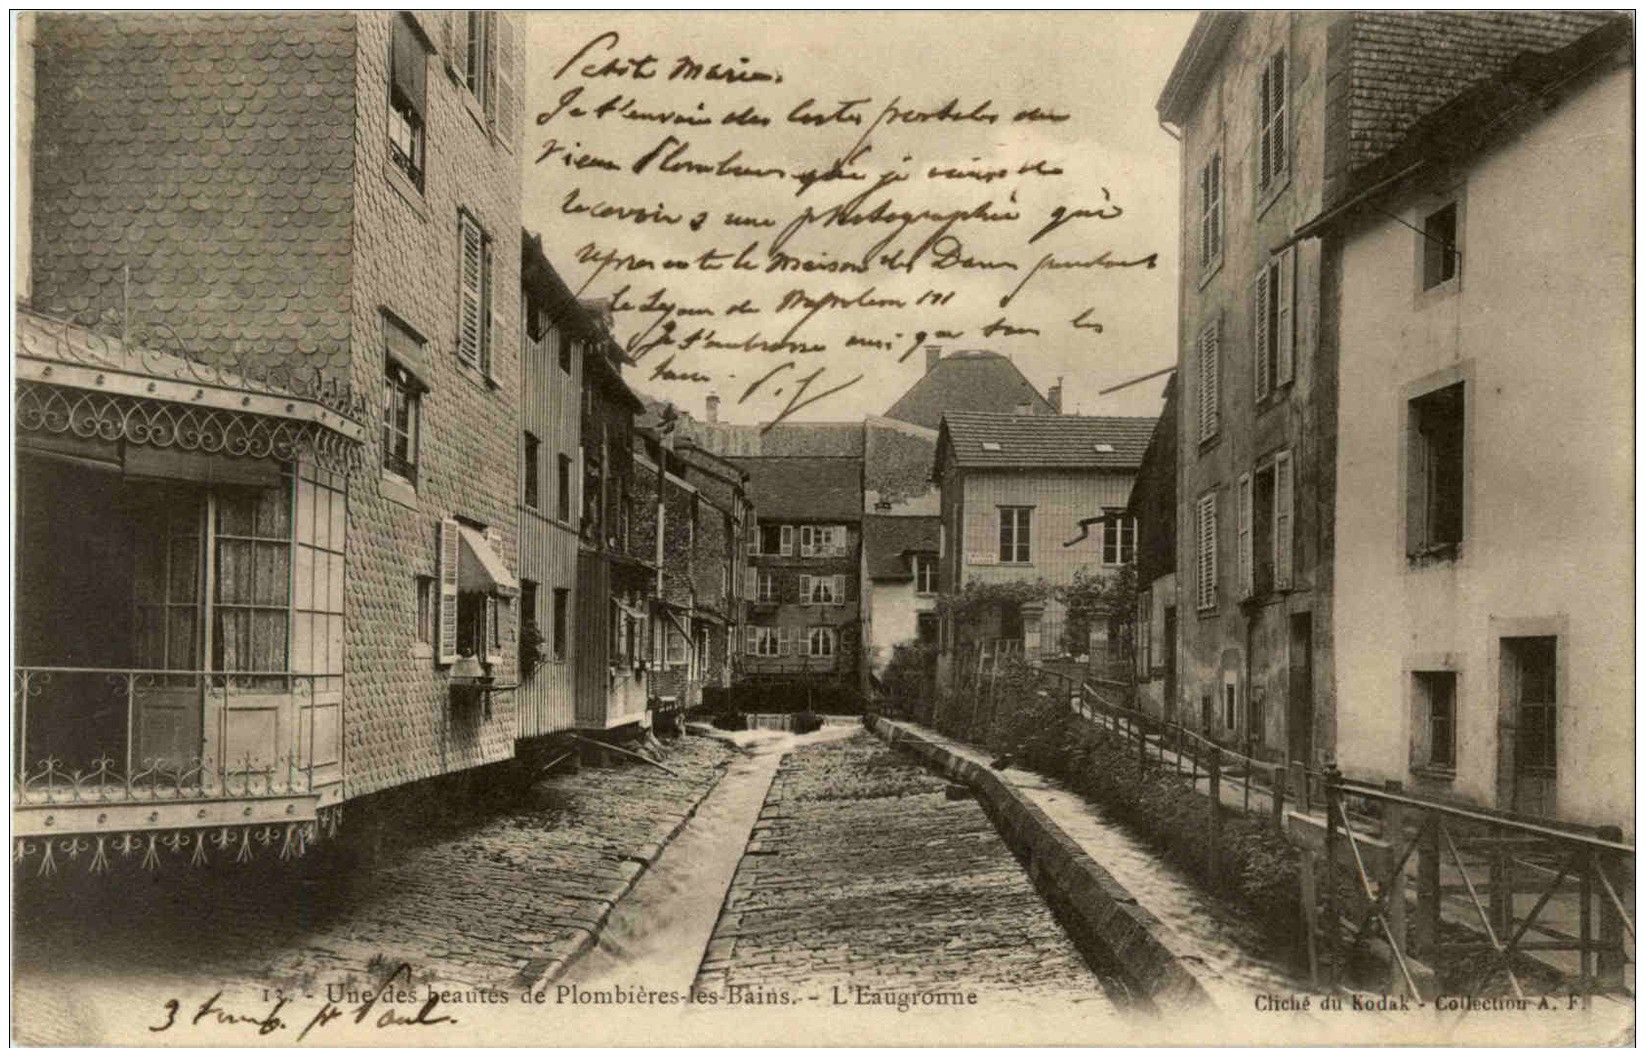 Petite Marie.
Je t'envoie des cartes postales du
vieux Plombières que je viens de
recevoir & une photographie qui
represente la maison des Dames pendant
le Sejour de Napoleon III
Je t'embrasse ainsi que tous les
tiens.
13. - Une des beautés de Plombières-les-Bains. - L'Eaugronne
3 timb. pr Paul.
Cliché du Kodak - Collection A. F.